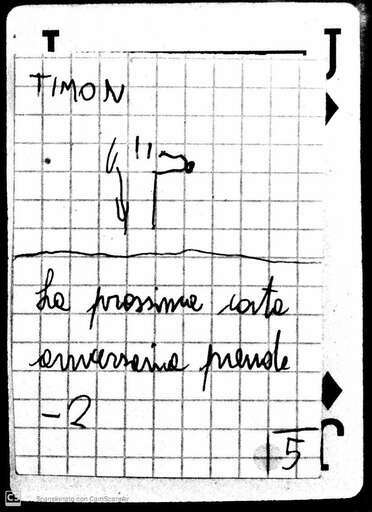 T
J
TIMON
La prossima carta
avversaria prende
-2
5
CS Scansionato con CamScanner